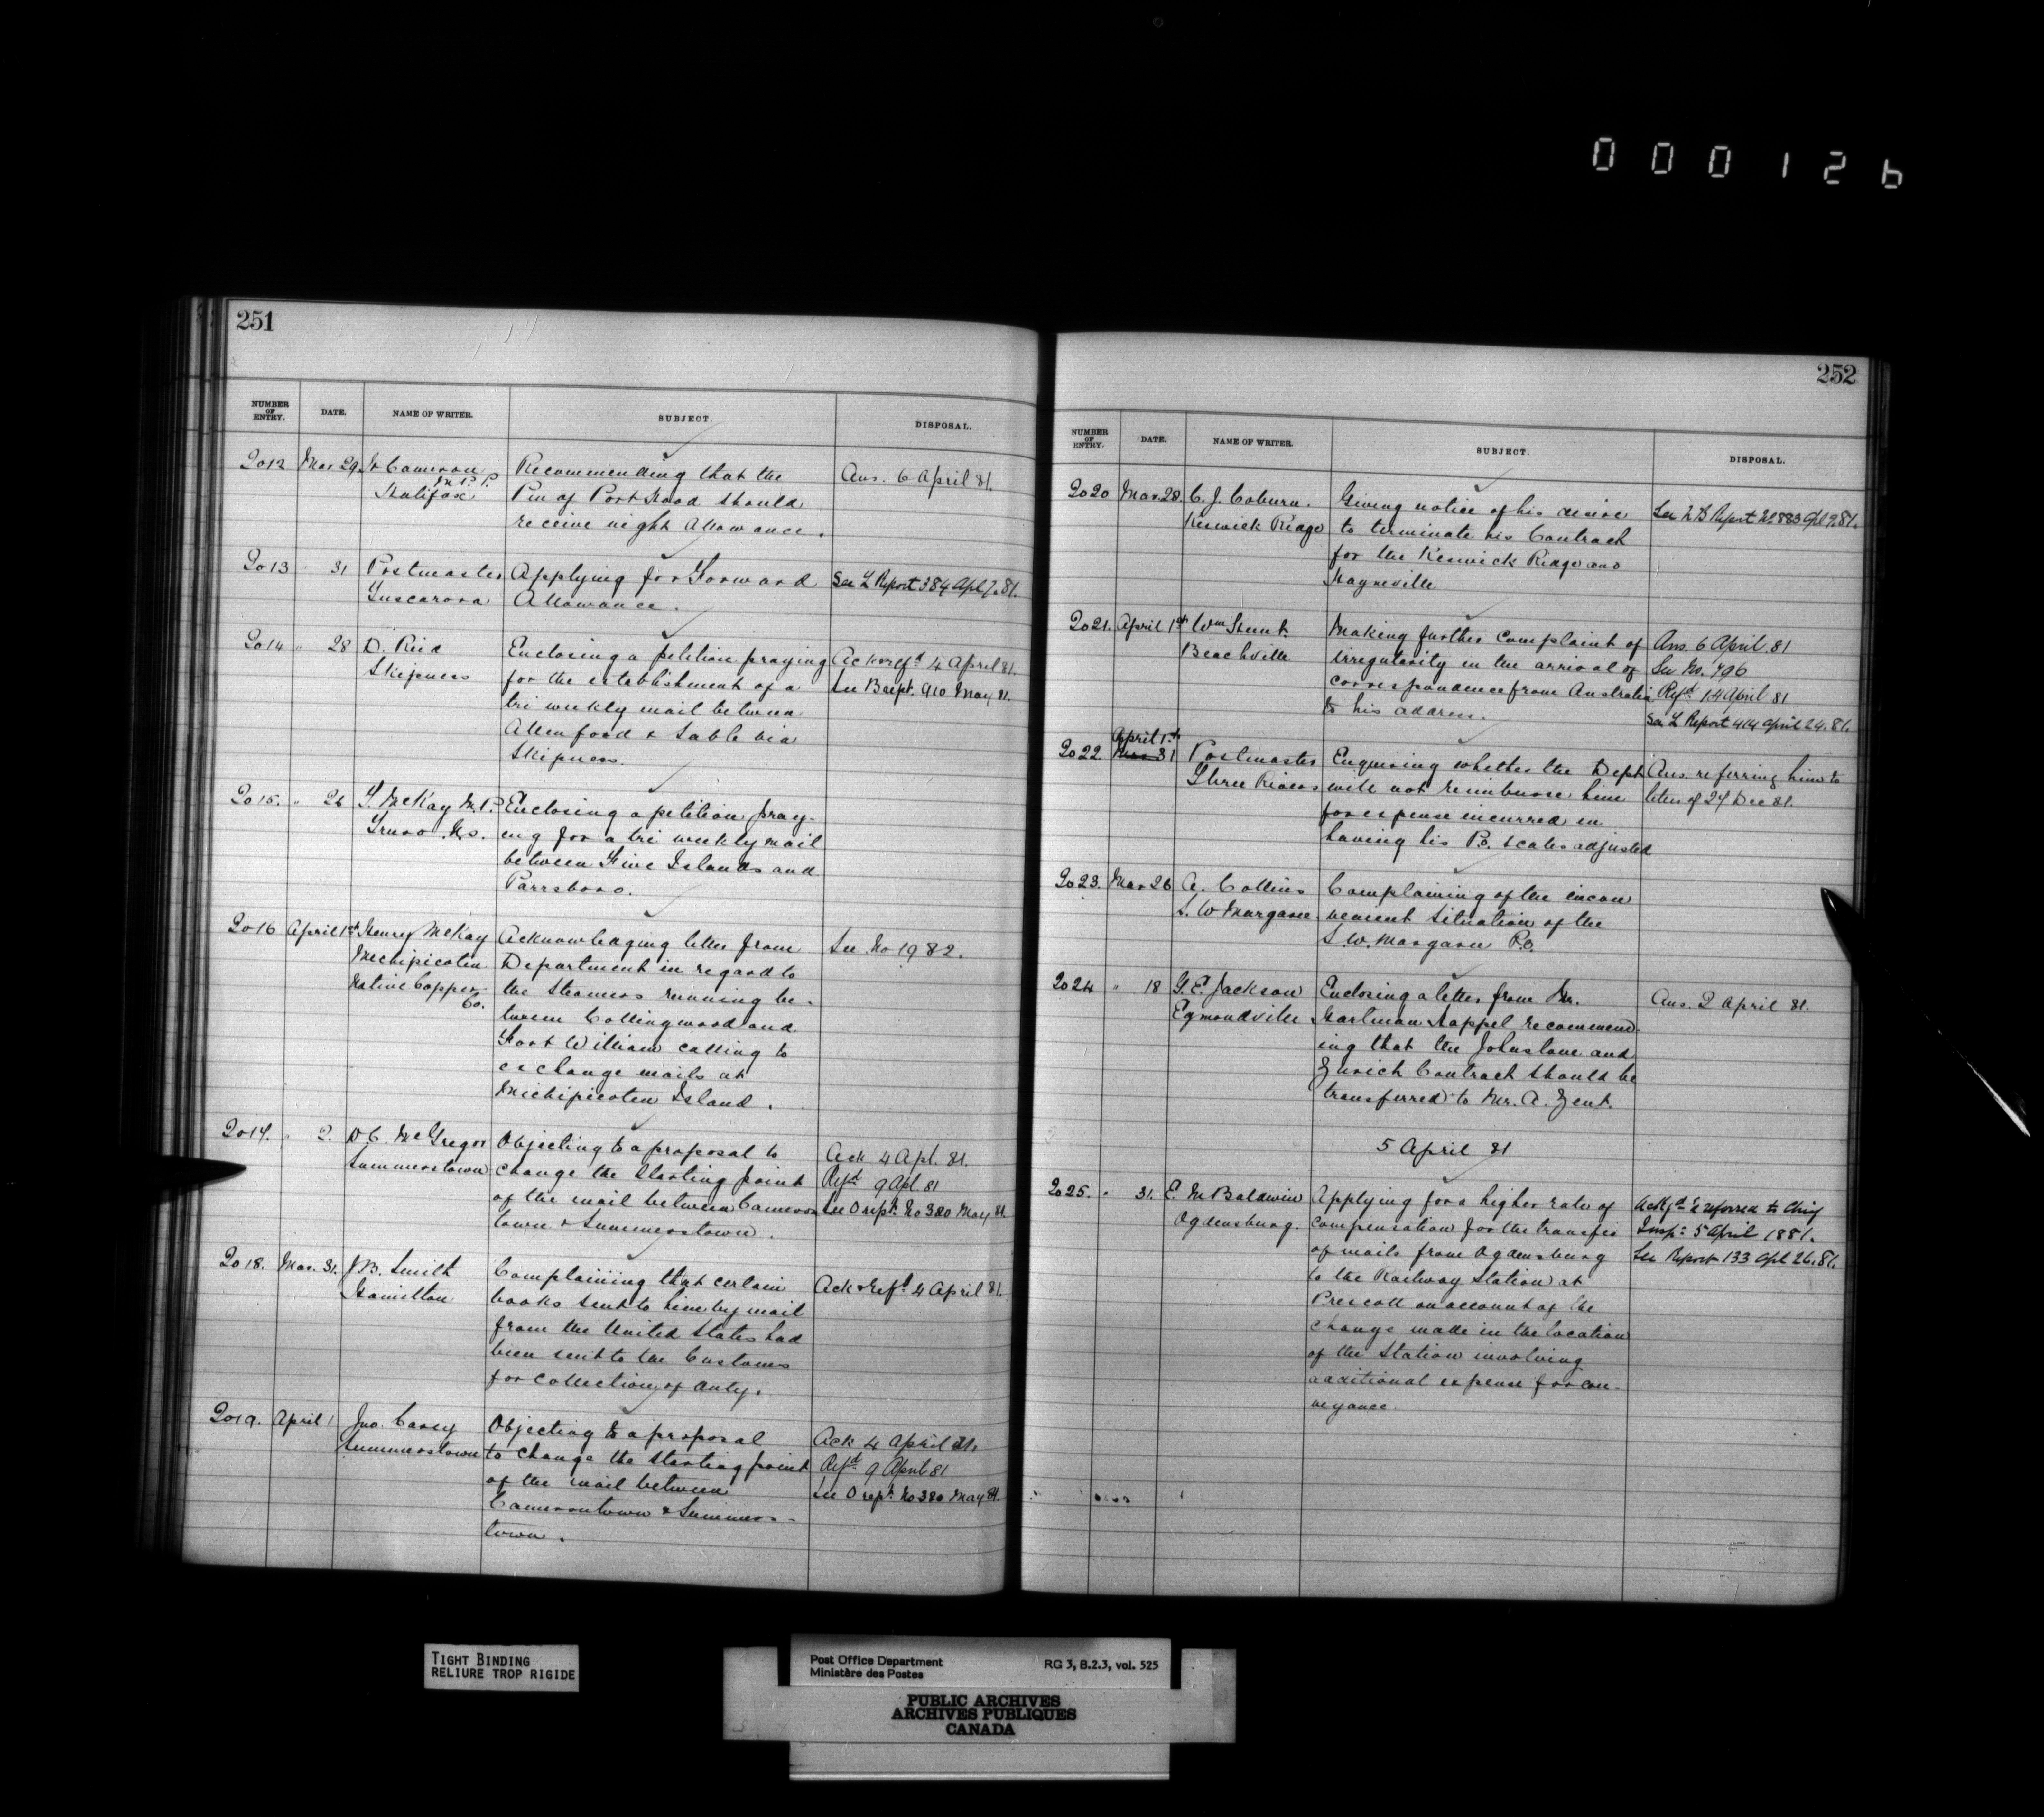 000126
251
NUMBER OF ENTRY. DATE. NAME OF WRITER. SUBJECT. DISPOSAL.
2012 Mar 29 Cameron M.P.P. Recommending that the Ans. 6 April 81.
Halifax P.M. of Port Hood should
receive night Allowance.
2013 " 31 Postmaster Applying for Forward See L Report 384 Apl 7. 81.
Tuscarora Allowance.
2014 " 28 D. Reid Enclosing a petition praying Ack & refd 4 April 81.
Skipness for the establishment of a See B rept. 910 May 81.
tri weekly mail between
Allenford & Sable via
Skipness.
2015. " 26 T. McKay M.P. Enclosing a petition pray-
Truro N.S. ing for a tri weekly mail
between Five Islands and
Parrsboro.
2016 April 1st Henry McKay Acknowledging letter from See No 1982.
Michipicoten Department in regard to
Native Copper the Steamers running be-
Co. tween Collingwood and
Fort William calling to
exchange mails at
Michipicoten Island.
2017. " 2. D.C. McGregor Objecting to a proposal to Ack 4 Apl. 81.
Summerstown change the Starting point Refd 9 Apl. 81
of the mail between Cameron See O rept. No 380 May 81.
town & Summerstown.
2018. Mar. 31. J.B. Smith Complaining that certain Ack & Refd 4 April 81.
Hamilton books sent to him by mail
from the United States had
been sent to the Customs
for collection of duty.
2019. April 1 Jno. Carey Objecting to a proposal Ack 4 April 81.
Summerstown to change the Starting point Refd 9 April 81
of the mail between See O rept. No 380 May 81.
Camerontown & Summers-
town.
252
NUMBER OF ENTRY. DATE. NAME OF WRITER. SUBJECT. DISPOSAL.
2020 Mar 28. C. J. Coburn. Giving notice of his desire See Report No 883 Apl 9. 81.
Keswick Ridge to terminate his Contract
for the Keswick Ridge and
Hayneville
2021. April 1st Wm Making further complaint of Ans. 6 April 81
Beachville irregularity in the arrival of See No. 796
correspondence from Australia Refd 14 April 81
to his address. See L Report 414 April 24. 81.
April 1st
2022 Mar 31 Postmaster Enquiring whether the Dept Ans. referring him to
Three Rivers will not reimburse him letter of 24 Dec 81.
for expense incurred in
having his P.O. scales adjusted
2023. Mar 26 A. Collins Complaining of the incon
S. W Margaree venient situation of the
S. W. Margaree P.O.
2024 " 18 G. E. Jackson Enclosing a letter from Mr. Ans. 2 April 81.
Egmondville Hartman Happel recommend
ing that the Johnstone and
Zurich Contract should be
transferred to Mr. A. Zent.
5 April 81
2025. " 31. E. M Baldwin Applying for a higher rate of Ackgd & referred to Chief
Ogdensburg. compensation for the transfer Insp. 5 April 1881.
of mails from Ogdensburg See Report 133 Apl 26. 81.
to the Railway Station at
Prescott on account of the
change made in the location
of the Station involving
additional expense for con-
veyance.
TIGHT BINDING
RELIURE TROP RIGIDE
Post Office Department RG 3, B.2.3, vol. 525
Ministère des Postes
PUBLIC ARCHIVES
ARCHIVES PUBLIQUES
CANADA